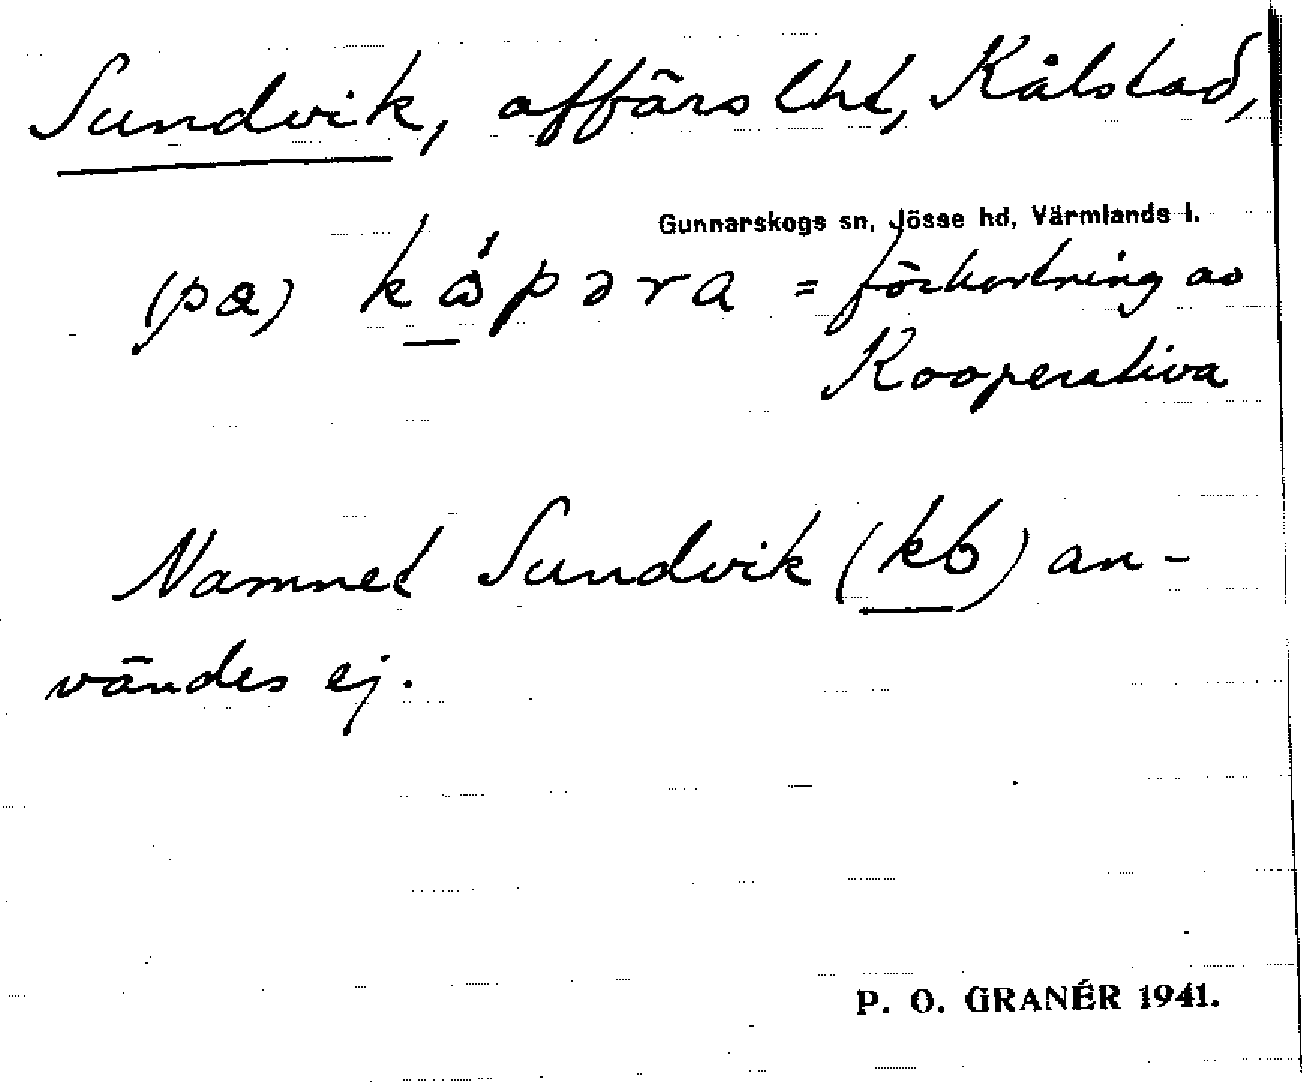 Sundvik, affärslht, Kålstad,
Gunnarskogs sn, Jösse hd, Värmlands l.
(pa) kåpəra = förkortning av
Kooperativa
Namnet Sundvik (kb) an-
vändes ej.
P. O. GRANÉR 1941.